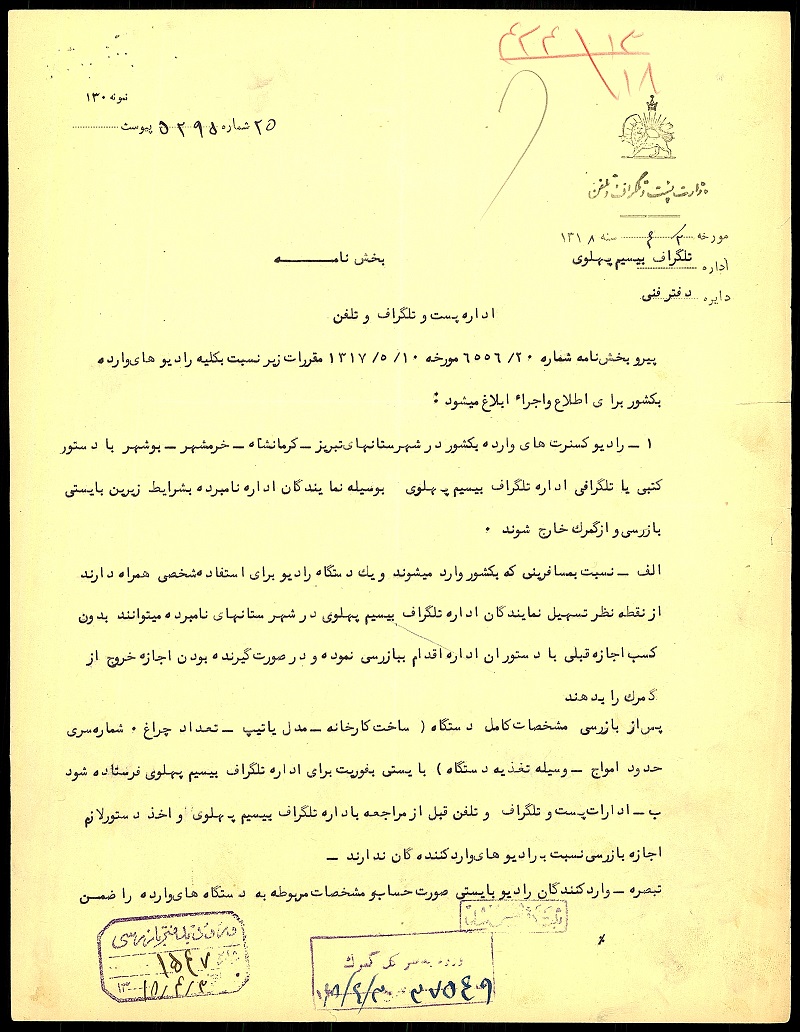 ۱۳/۴۲۴
۱۸
نمونه ۱۳۰
۲۵ شماره ۵۲۹۵ پیوست
وزارت پست و تلگراف و تلفن
مورخه ۳/۴ سنه ۱۳۱۸
اداره تلگراف بیسیم پهلوی
دایره دفتر فنی
بخش نامـــه
اداره پست و تلگراف و تلفن
پیرو بخش نامه شماره ۲۰/ ۶۵۵۶ مورخه ۱۰/ ۵/ ۱۳۱۷ مقررات زیر نسبت بکلیه رادیو های وارده
بکشور برای اطلاع و اجراء ابلاغ میشود :
۱ ــ رادیو کسنرت های وارده بکشور در شهرستانهای تبریز ــ کرمانشاه ــ خرمشهر ــ بوشهر با دستور
کتبی یا تلگرافی اداره تلگراف بیسیم پهلوی بوسیله نمایندگان اداره نامبرده بشرایط زیرین بایستی
بازرسی و از گمرك خارج شوند ۰
الف ــ نسبت بمسافرینی که بکشور وارد میشوند و یك دستگاه رادیو برای استفاده شخصی همراه دارند
از نقطه نظر تسهیل نمایندگان اداره تلگراف بیسیم پهلوی در شهرستانهای نامبرده میتوانند بدون
کسب اجازه قبلی با دستور ان اداره اقدام ببازرسی نموده و در صورت گیرنده بودن اجازه خروج از
گمرك را بدهند
پس از بازرسی مشخصات کامل دستگاه ( ساخت کارخانه ــ مدل یا تیپ ــ تعداد چراغ ۰ شماره سری
حدود امواج ــ وسیله تغذیه دستگاه ) بایستی بفوریت برای اداره تلگراف بیسیم پهلوی فرستاده شود
ب ــ ادارات پست و تلگراف و تلفن قبل از مراجعه باداره تلگراف بیسیم پهلوی و اخذ دستور لازم
اجازه بازرسی نسبت به رادیو های وارد کننده گان ندارند ــ
تبصره ــ وارد کنندگان رادیو بایستی صورت حساب و مشخصات مربوطه به دستگاه های وارده را ضمن
ورود به دفتر بازرسی
۱۵۴۷
ورود بدفتر کل گمرك